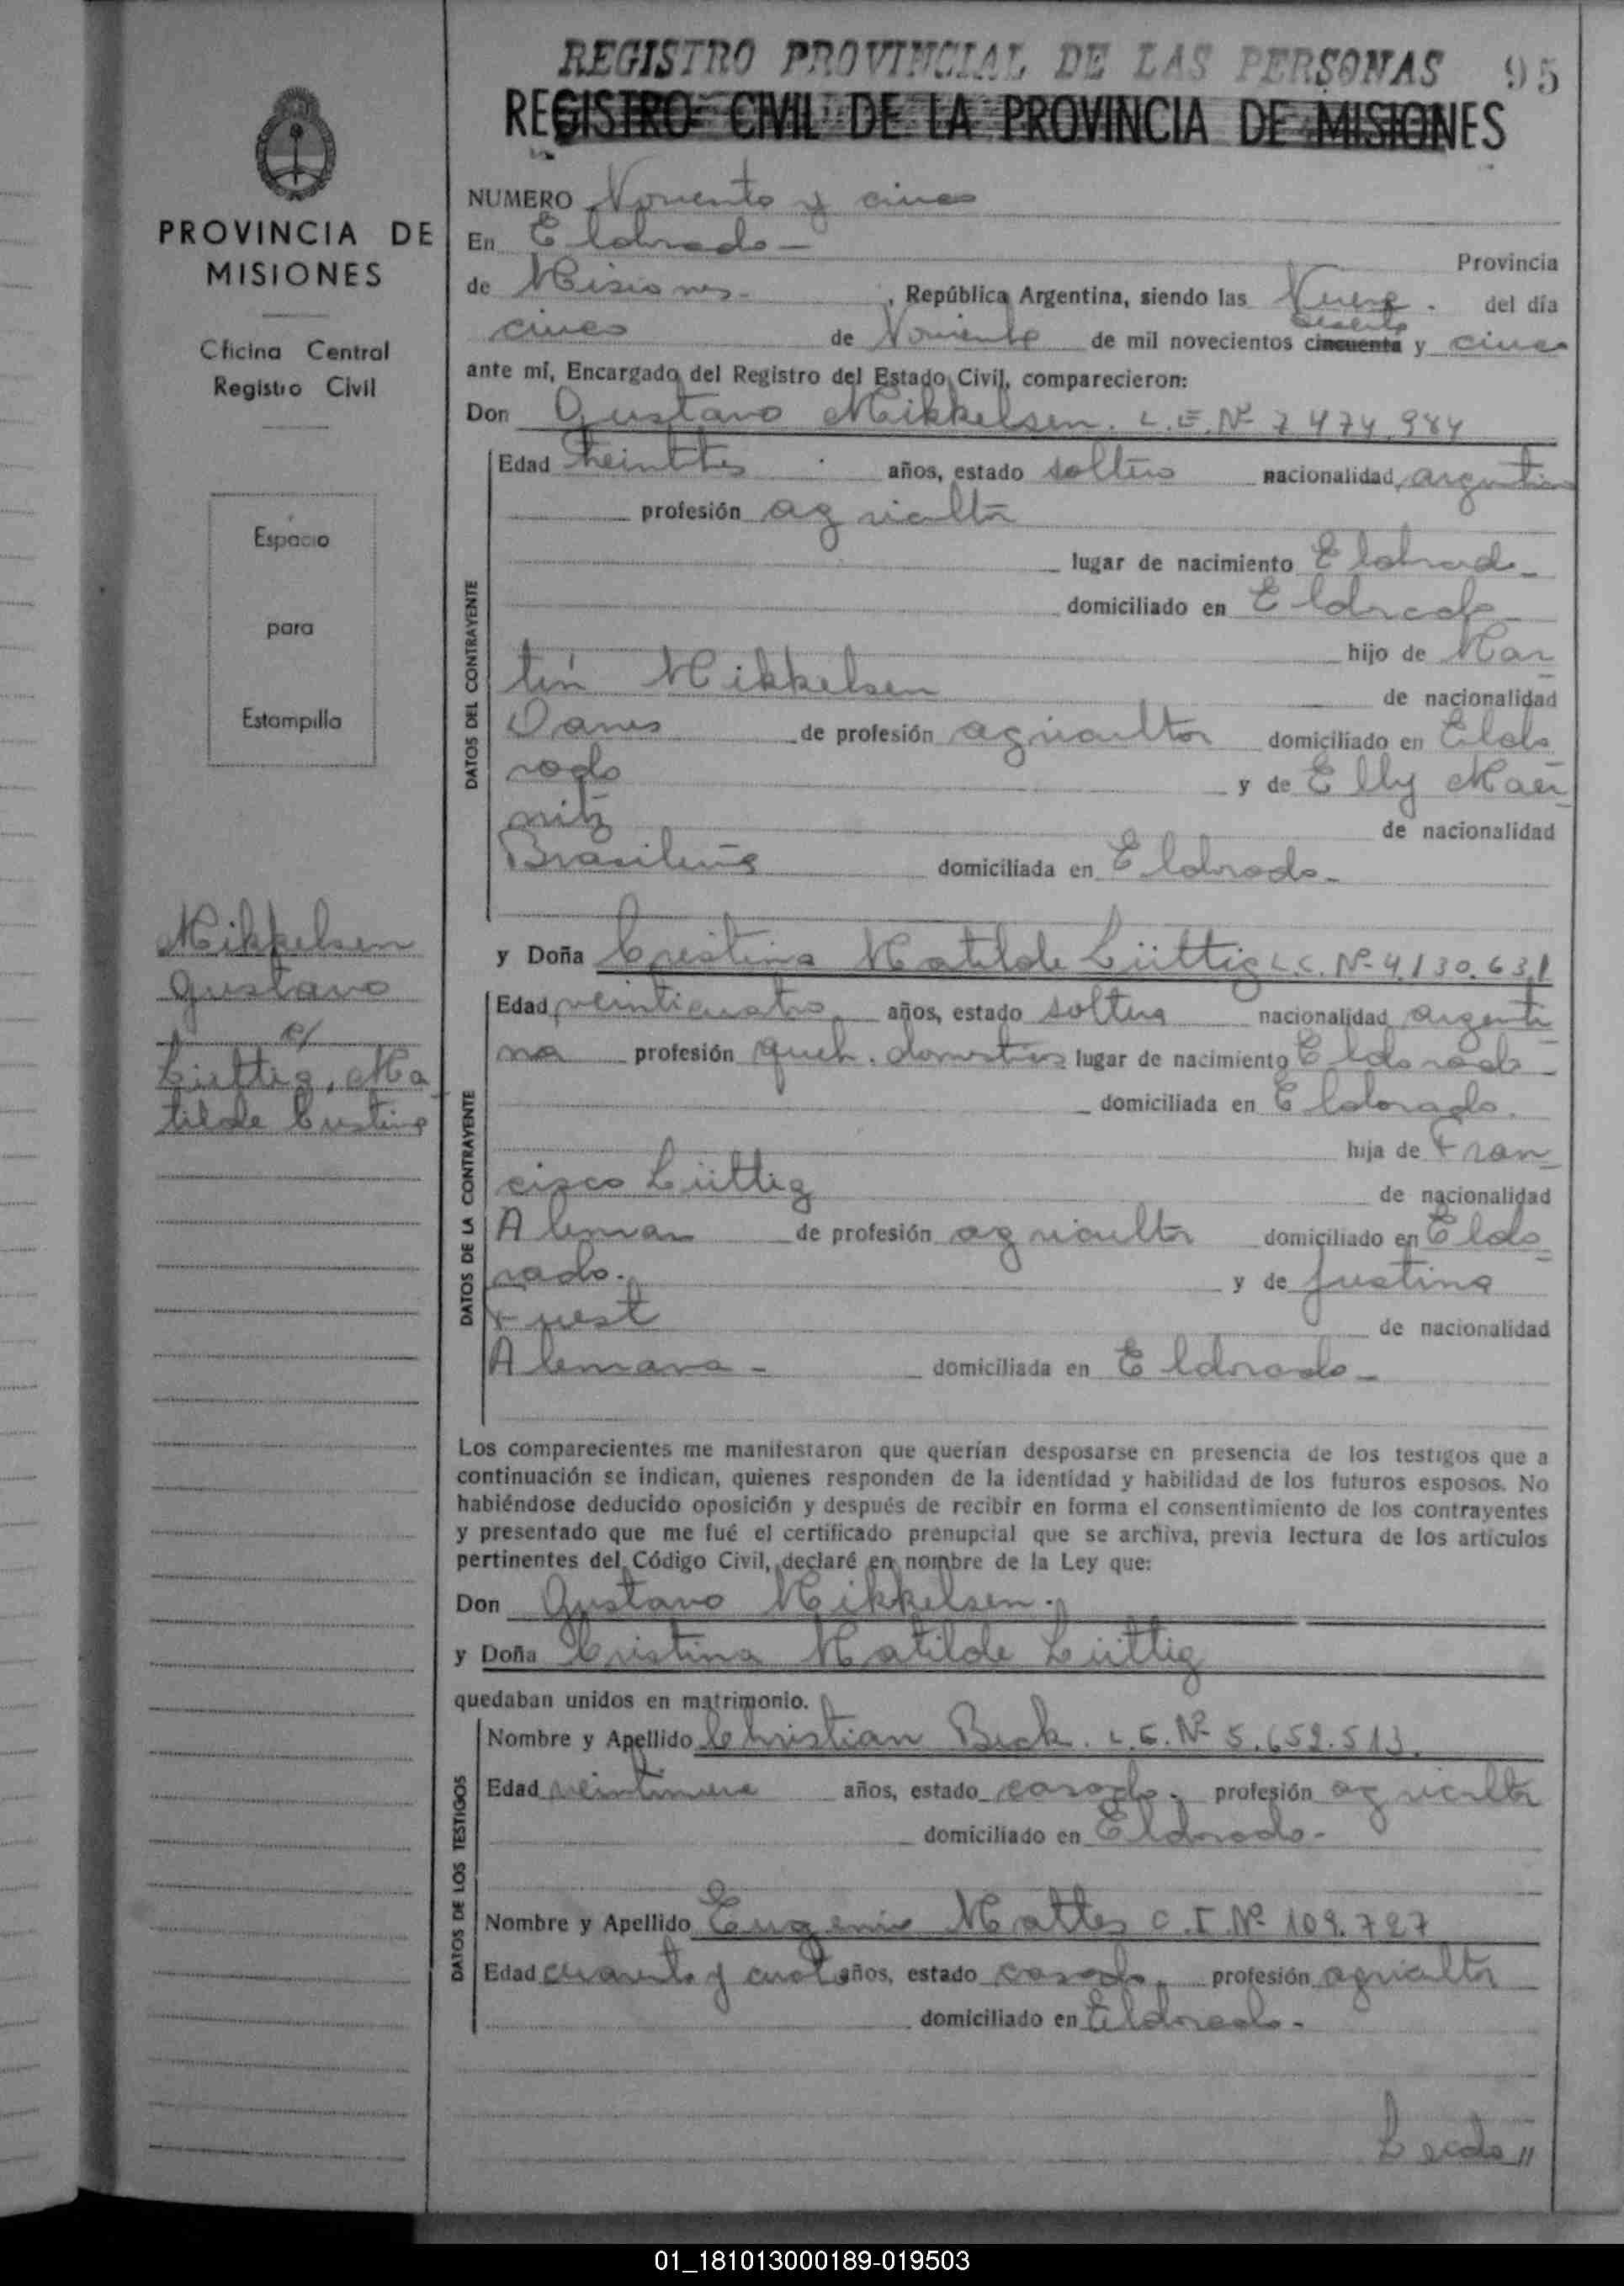 REGISTRO PROVINCIAL DE LAS PERSONAS 95
REGISTRO CIVIL DE LA PROVINCIA DE MISIONES
PROVINCIA DE
MISIONES
Oficina Central
Registro Civil
Espacio
para
Estampilla
Mikkelsen
Gustavo
c/
Lüttig, Ma
tilde Cristina
NUMERO Noventa y cinco
En Eldorado - Provincia
de Misiones - , República Argentina, siendo las Nueve - del día
sesenta
cinco de Noviembre de mil novecientos cincuenta y cinco
ante mí, Encargado del Registro del Estado Civil, comparecieron:
Don Gustavo Mikkelsen. L.E. Nº 7 474.984
Edad treinta años, estado soltero nacionalidad argentino
profesión agricultor
lugar de nacimiento Eldorado -
domiciliado en Eldorado
hijo de Mar
tín Mikkelsen de nacionalidad
Danes de profesión agricultor domiciliado en Eldo
rado y de Elly Maer
nitz de nacionalidad
Brasileña domiciliada en Eldorado -
y Doña Cristina Matilde Lüttig L.C. Nº 4.130.631
Edad veinticuatro años, estado soltera nacionalidad argenti
na profesión queh. domesticos lugar de nacimiento Eldorado
domiciliada en Eldorado.
hija de Fran
cisco Lüttig de nacionalidad
Aleman de profesión agricultor domiciliado en Eldo
rado. y de Justina
Fuest de nacionalidad
Alemana - domiciliada en Eldorado -
DATOS DEL CONTRAYENTE
DATOS DE LA CONTRAYENTE
Los comparecientes me manifestaron que querían desposarse en presencia de los testigos que a
continuación se indican, quienes responden de la identidad y habilidad de los futuros esposos. No
habiéndose deducido oposición y después de recibir en forma el consentimiento de los contrayentes
y presentado que me fué el certificado prenupcial que se archiva, previa lectura de los artículos
pertinentes del Código Civil, declaré en nombre de la Ley que:
Don Gustavo Mikkelsen.
y Doña Cristina Matilde Lüttig
quedaban unidos en matrimonio.
DATOS DE LOS TESTIGOS
Nombre y Apellido Christian Beck. L.E. Nº 5.652.513.
Edad veintinueve años, estado casado, profesión agricultor
domiciliado en Eldorado -
Nombre y Apellido Eugenio Mattes C.I. Nº 109.727
Edad cuarenta y cuatro años, estado casado, profesión agricultor
domiciliado en Eldorado -
Leida //
01_181013000189-019503